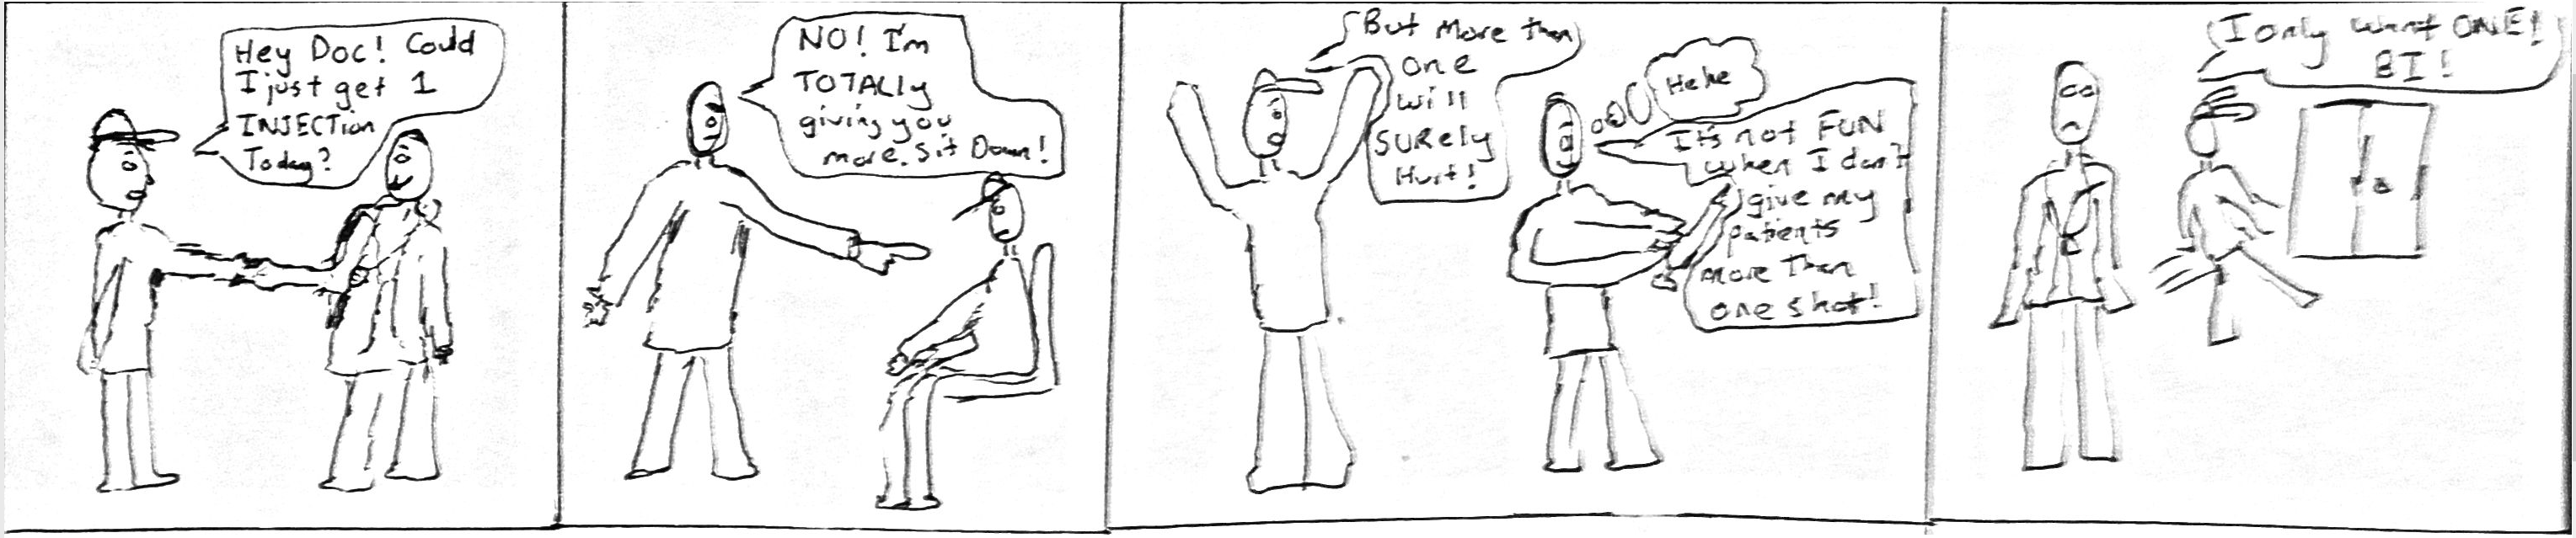 Hey Doc! Could
I just get 1
INJECTion
Today?
NO! I'm
TOTALLy
giving you
more. Sit Down!
But More than
one
will
SURely
Hurt!
Hehe
It's not FUN
when I don't
give my
patients
more Than
one shot!
I only want ONE!
BI!